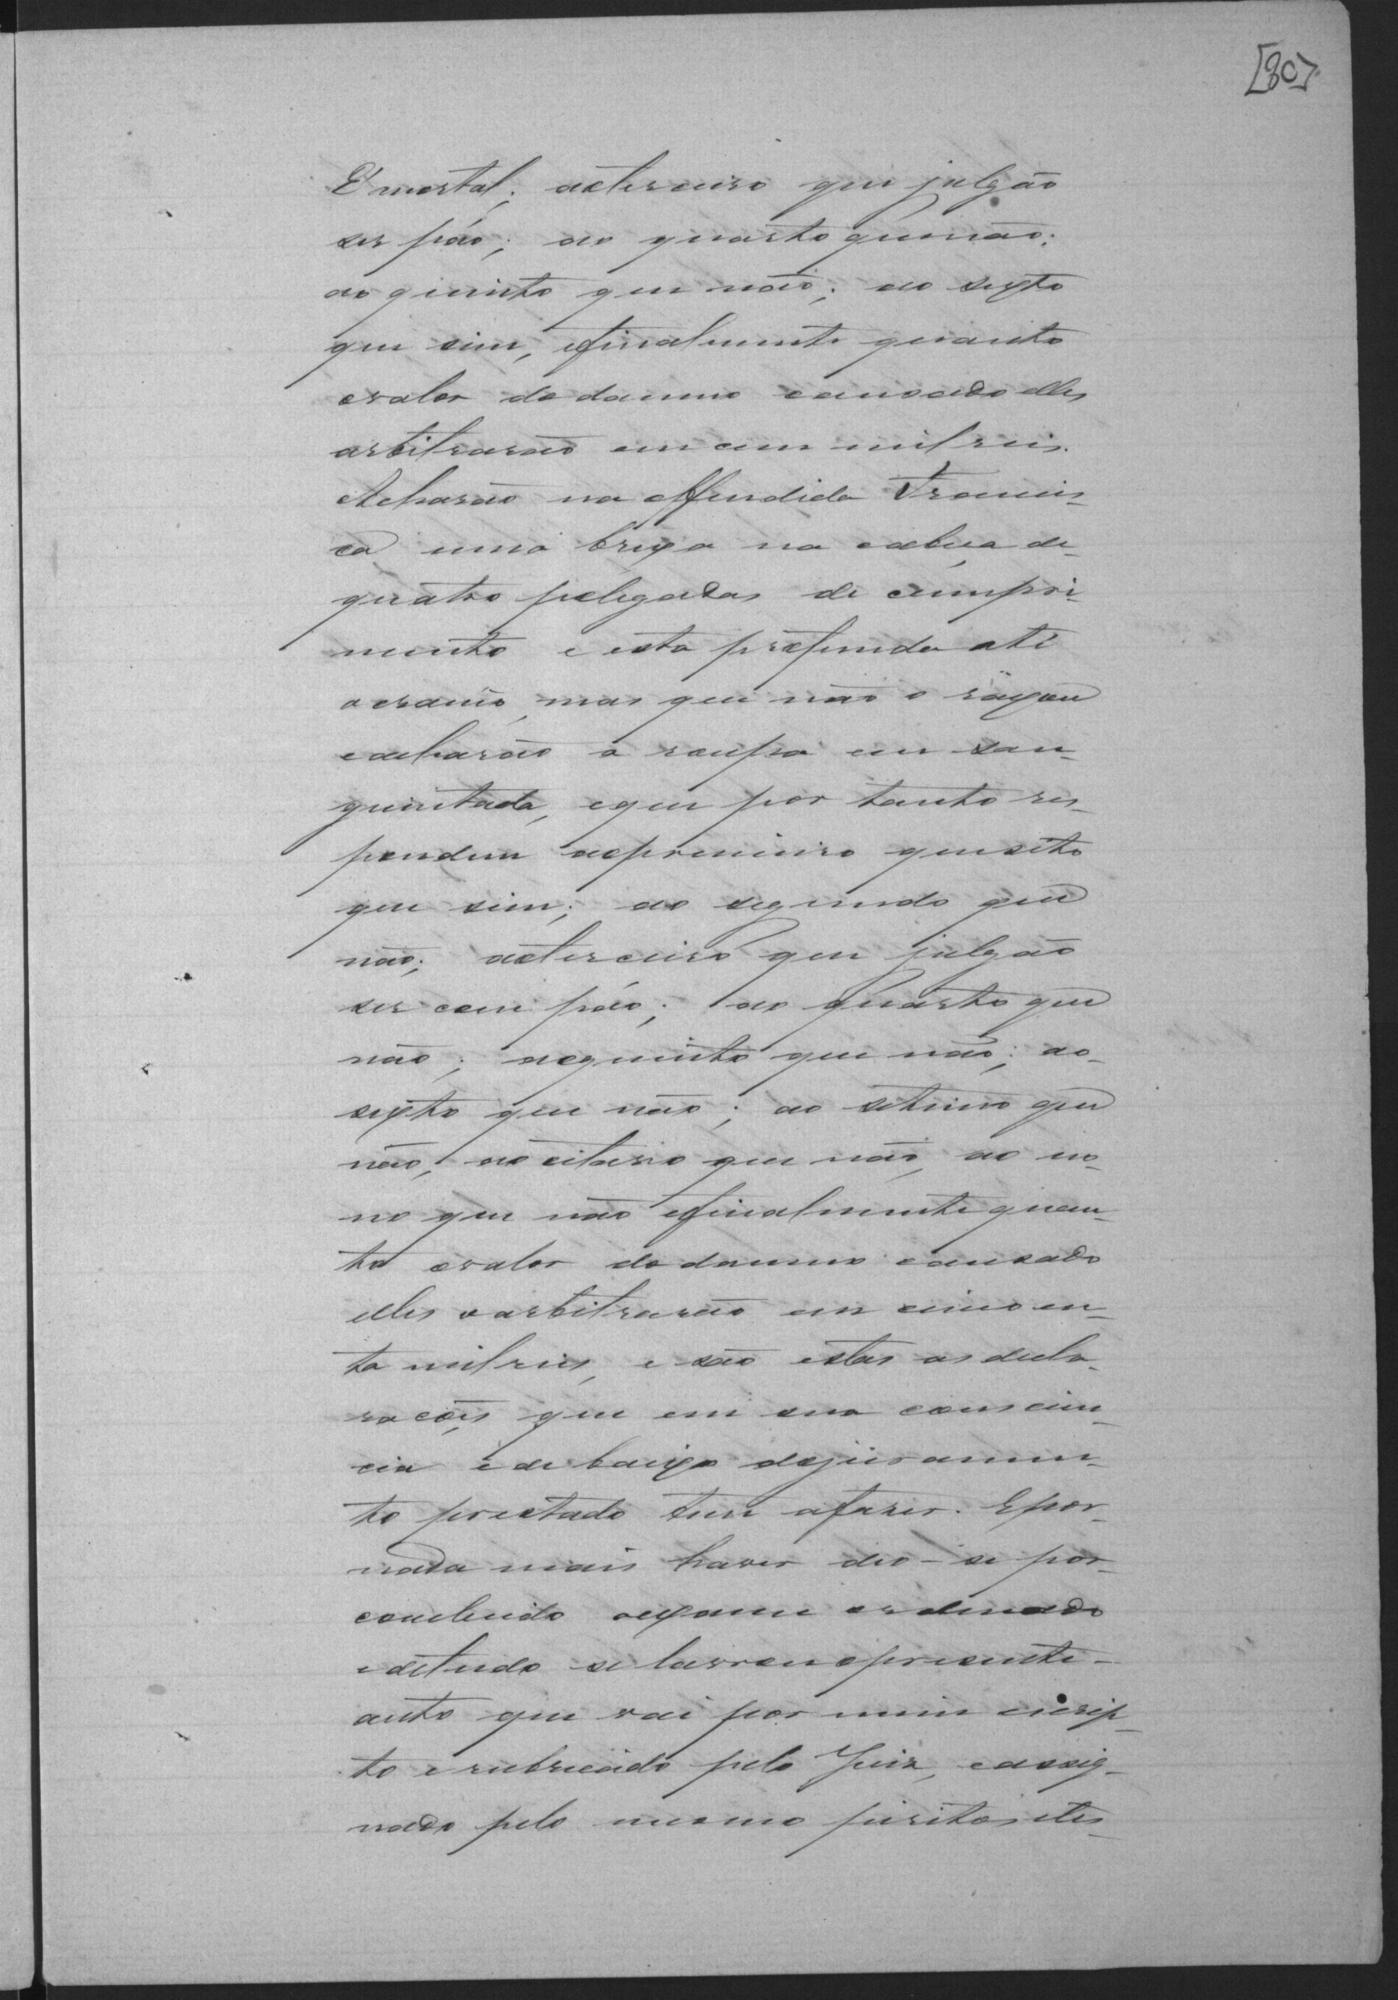 [80]
E' mortal; aoterceiro que julgão
ser páo; ao quarto quenão;
ao quinto que não; ao sexto
que sim, efinalmente quanto
ovalor do damno causado elles
arbitrarão em cem milreis.
Acharão na offendida Francis-
ca uma brexa na cabeça de
quatro polegadas de compri-
mento e esta profunda até
ocraneo, mas que não o raxou
eacharão a roupa en san-
guentada, eque por tanto res-
pondem aoprimeiro quesito
que sim; ao segundo que
não; aoterceiro que julgão
ser com páo; ao quarto que
não; aoquinto que não; ao
sexto que não; ao setimo que
não, ao oitavo que não, ao no-
no que não efinalmente quan-
to ovalor do damno causado
elles oarbitrarão em cincoen-
ta milreis, e são estas as decla-
rações que em sua conscien-
cia e de baixo dojuramen-
to prestado tem afazer. Epor
nada mais haver deo-se por
concluido oexame ordenado
edetudo se lavrou opresente
auto que vai por mim escrip-
to e rubricado pelo Juiz, eassig-
nado pelo mesmo peritos etes-